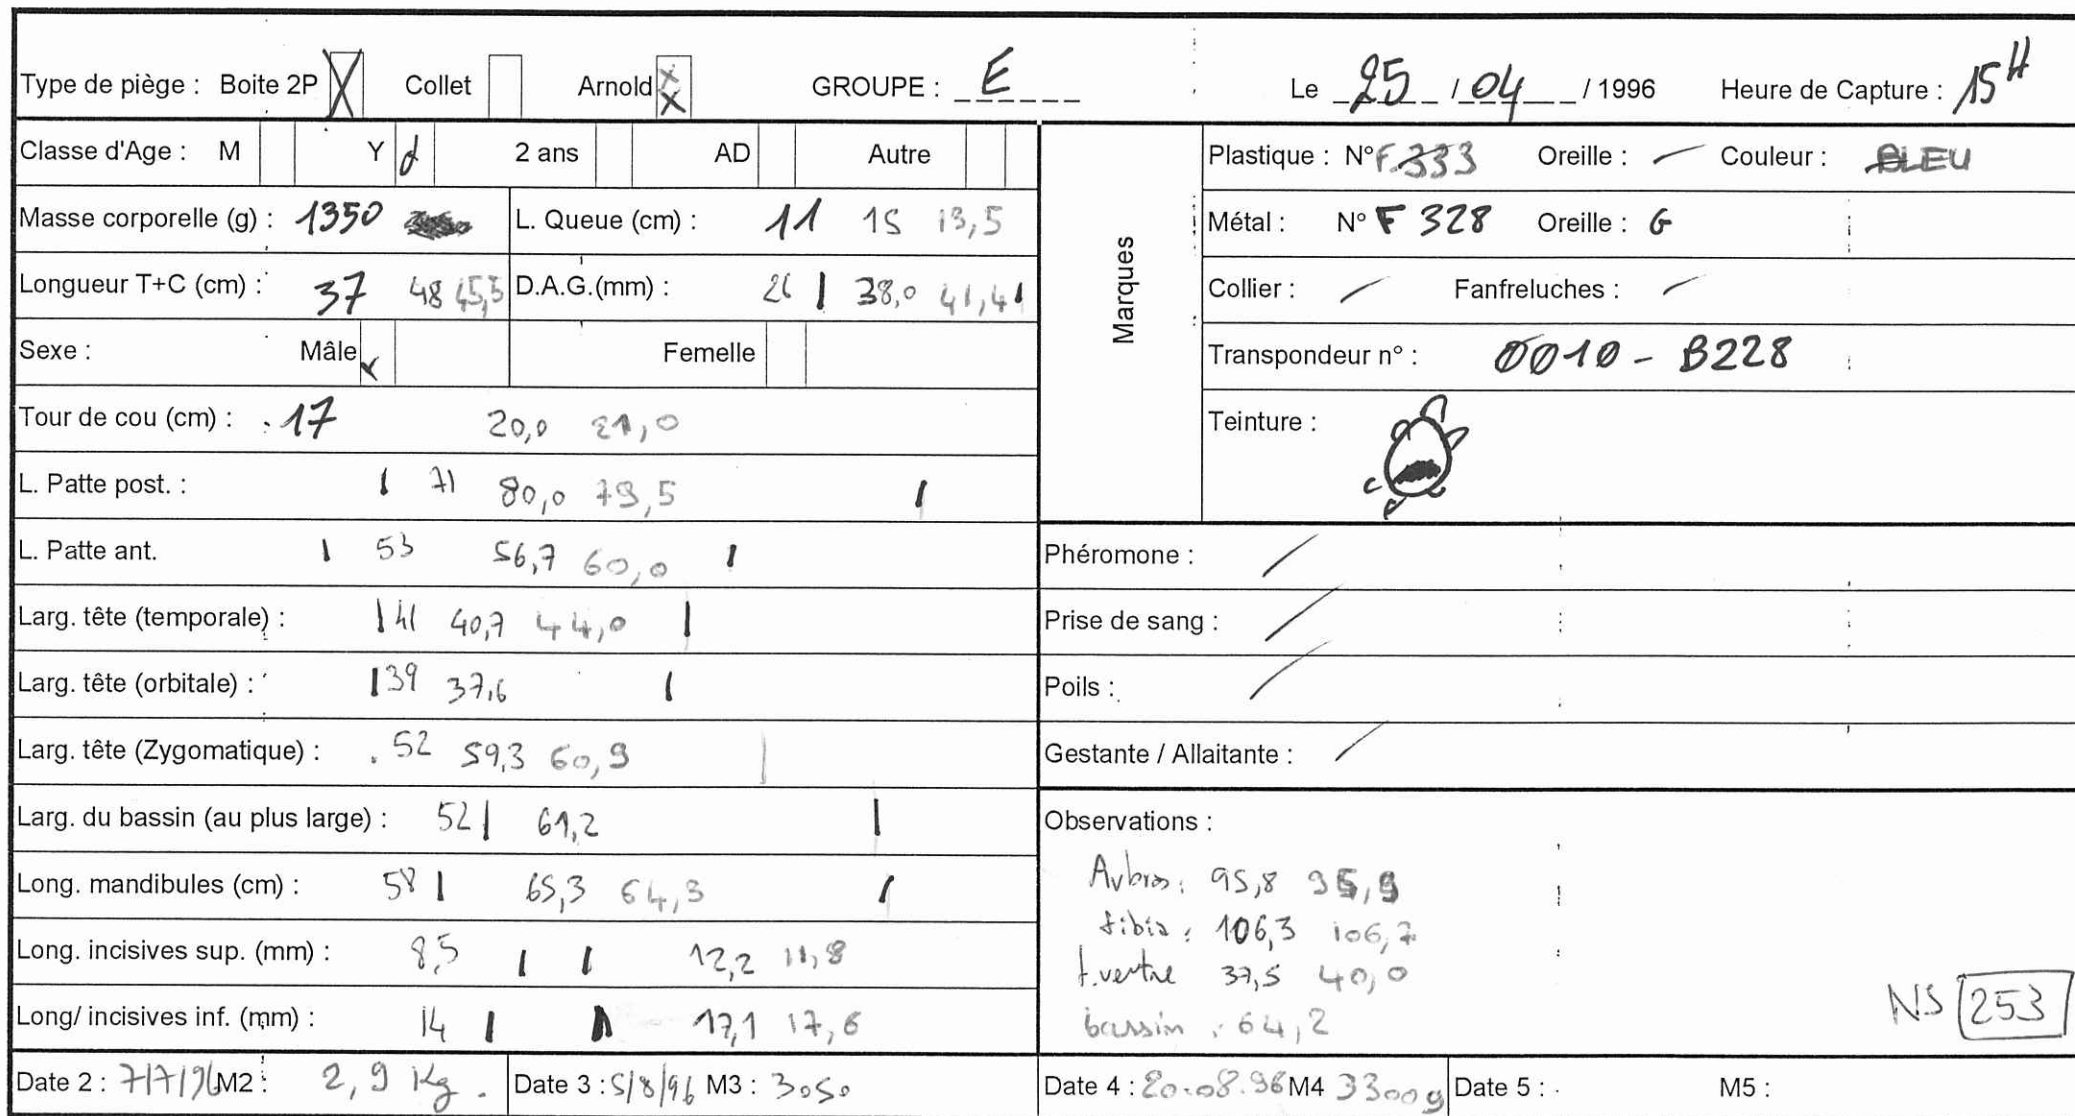 Type de piège : Boite 2P X Collet Arnold X X GROUPE : E Le 25 / 04 / 1996 Heure de Capture : 15H
Classe d'Age : M Y 2 ans AD Autre
Masse corporelle (g) : 1350 L. Queue (cm) : 11 15 13,5
Longueur T+C (cm) : 37 48 45,5 D.A.G.(mm) : 26 38,0 41,4
Sexe : Mâle Femelle
Tour de cou (cm) : 17 20,0 21,0
L. Patte post. : 71 80,0 79,5
L. Patte ant. 53 56,7 60,0
Larg. tête (temporale) : 41 40,7 44,0
Larg. tête (orbitale) : 39 37,6
Larg. tête (Zygomatique) : 52 59,3 60,9
Larg. du bassin (au plus large) : 52 61,2
Long. mandibules (cm) : 58 65,3 64,3
Long. incisives sup. (mm) : 8,5 12,2 11,8
Long/ incisives inf. (mm) : 14 17,1 17,6
Marques
Plastique : N° F.333 Oreille : Couleur : BLEU
Métal : N° F 328 Oreille : G
Collier : Fanfreluches :
Transpondeur n° : 0010 - B228
Teinture :
Phéromone :
Prise de sang :
Poils :
Gestante / Allaitante :
Observations :
Avbras : 95,8 95,9
tibia : 106,3 106,7
t.ventre 37,5 40,0
bassin : 64,2
NS 253
Date 2 : 7/7/96 M2 : 2,9 Kg. Date 3 : 5/8/96 M3 : 3050 Date 4 : 20.08.96 M4 3300g Date 5 : M5 :